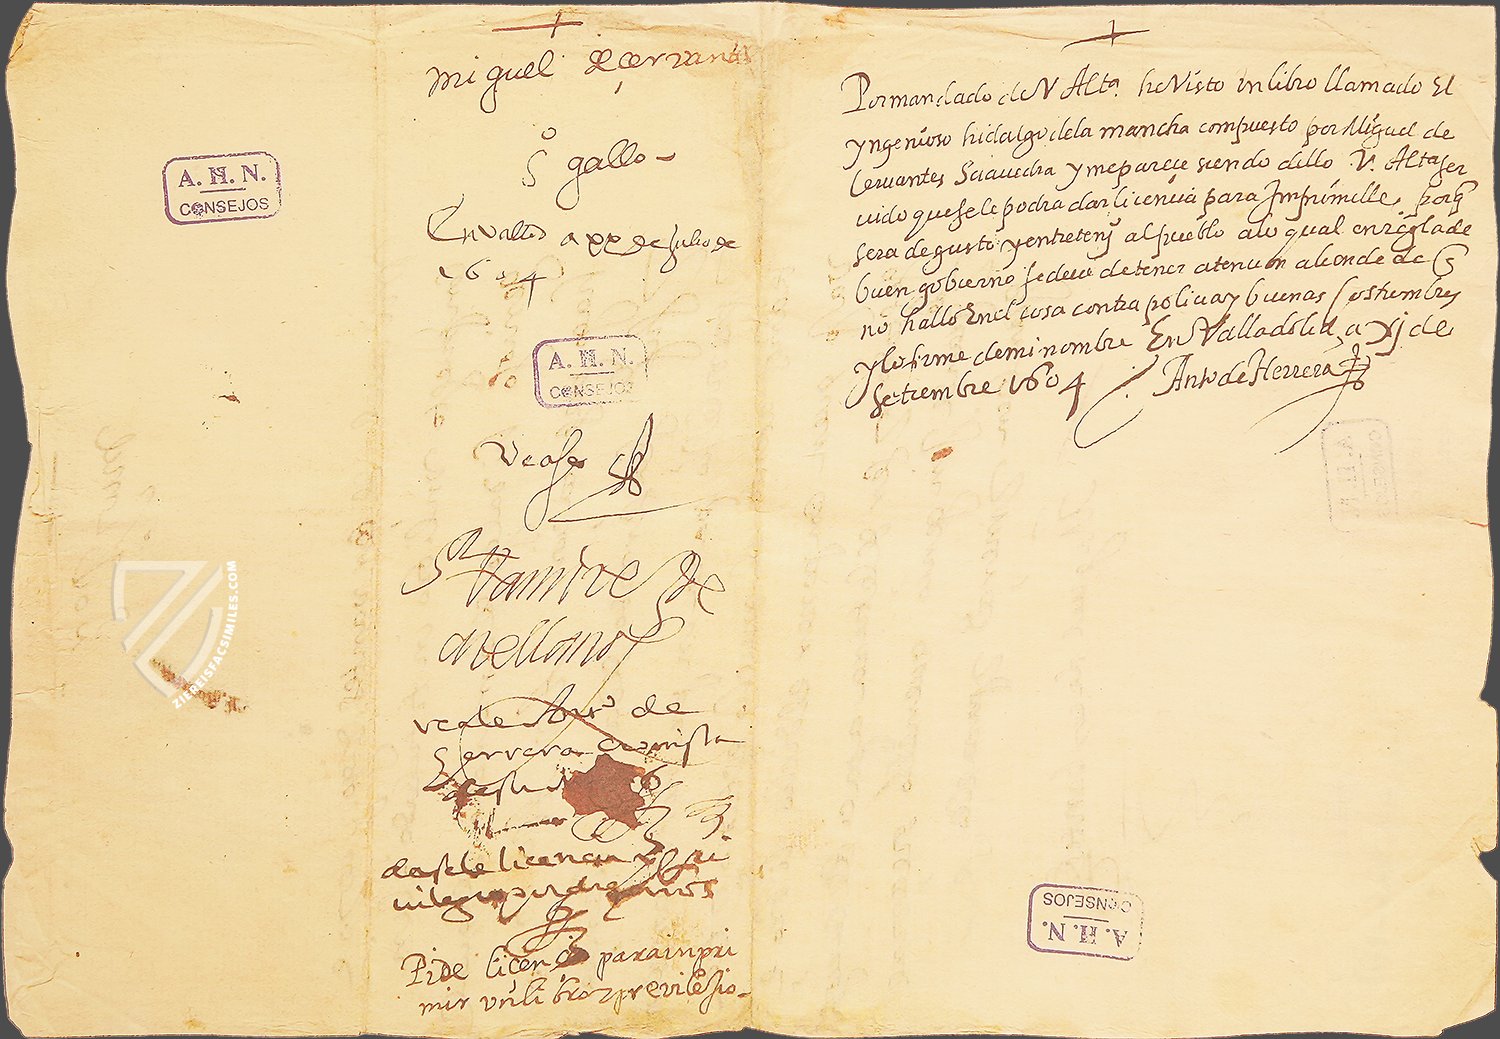 Miguel de cervantes
So gallo
En Vallid a xx de Julio de
1604
A. H. N.
CONSEJOS
A. H. N.
CONSEJOS
Vease
Ramirez de
arellano
veale Anto de
herrera cronista
de su
dasele licencia y pri
vilegio por diez años
Pide licencia para inpri
mir vn libro y previlesio
Por mandado de V Alta. he Visto un libro llamado El
yngenioso hidalgo de la mancha compuesto por Miguel de
Cervantes Saavedra y me parece siendo dello V. Alta ser
uido que se le podra dar licencia para Imprimille, porq
sera de gusto y entretenj al pueblo a lo qual en regla de
buen gobierno se deue de tener atencion aliende de q
no hallo En el cosa contra policia y buenas Costumbres
y lo firme de mi nombre En Valladolid a xj de
Setiembre 1604 Anto de Herrera
A. H. N.
A. H. N.
CONSEJOS
ZIEREISFACSIMILES.COM